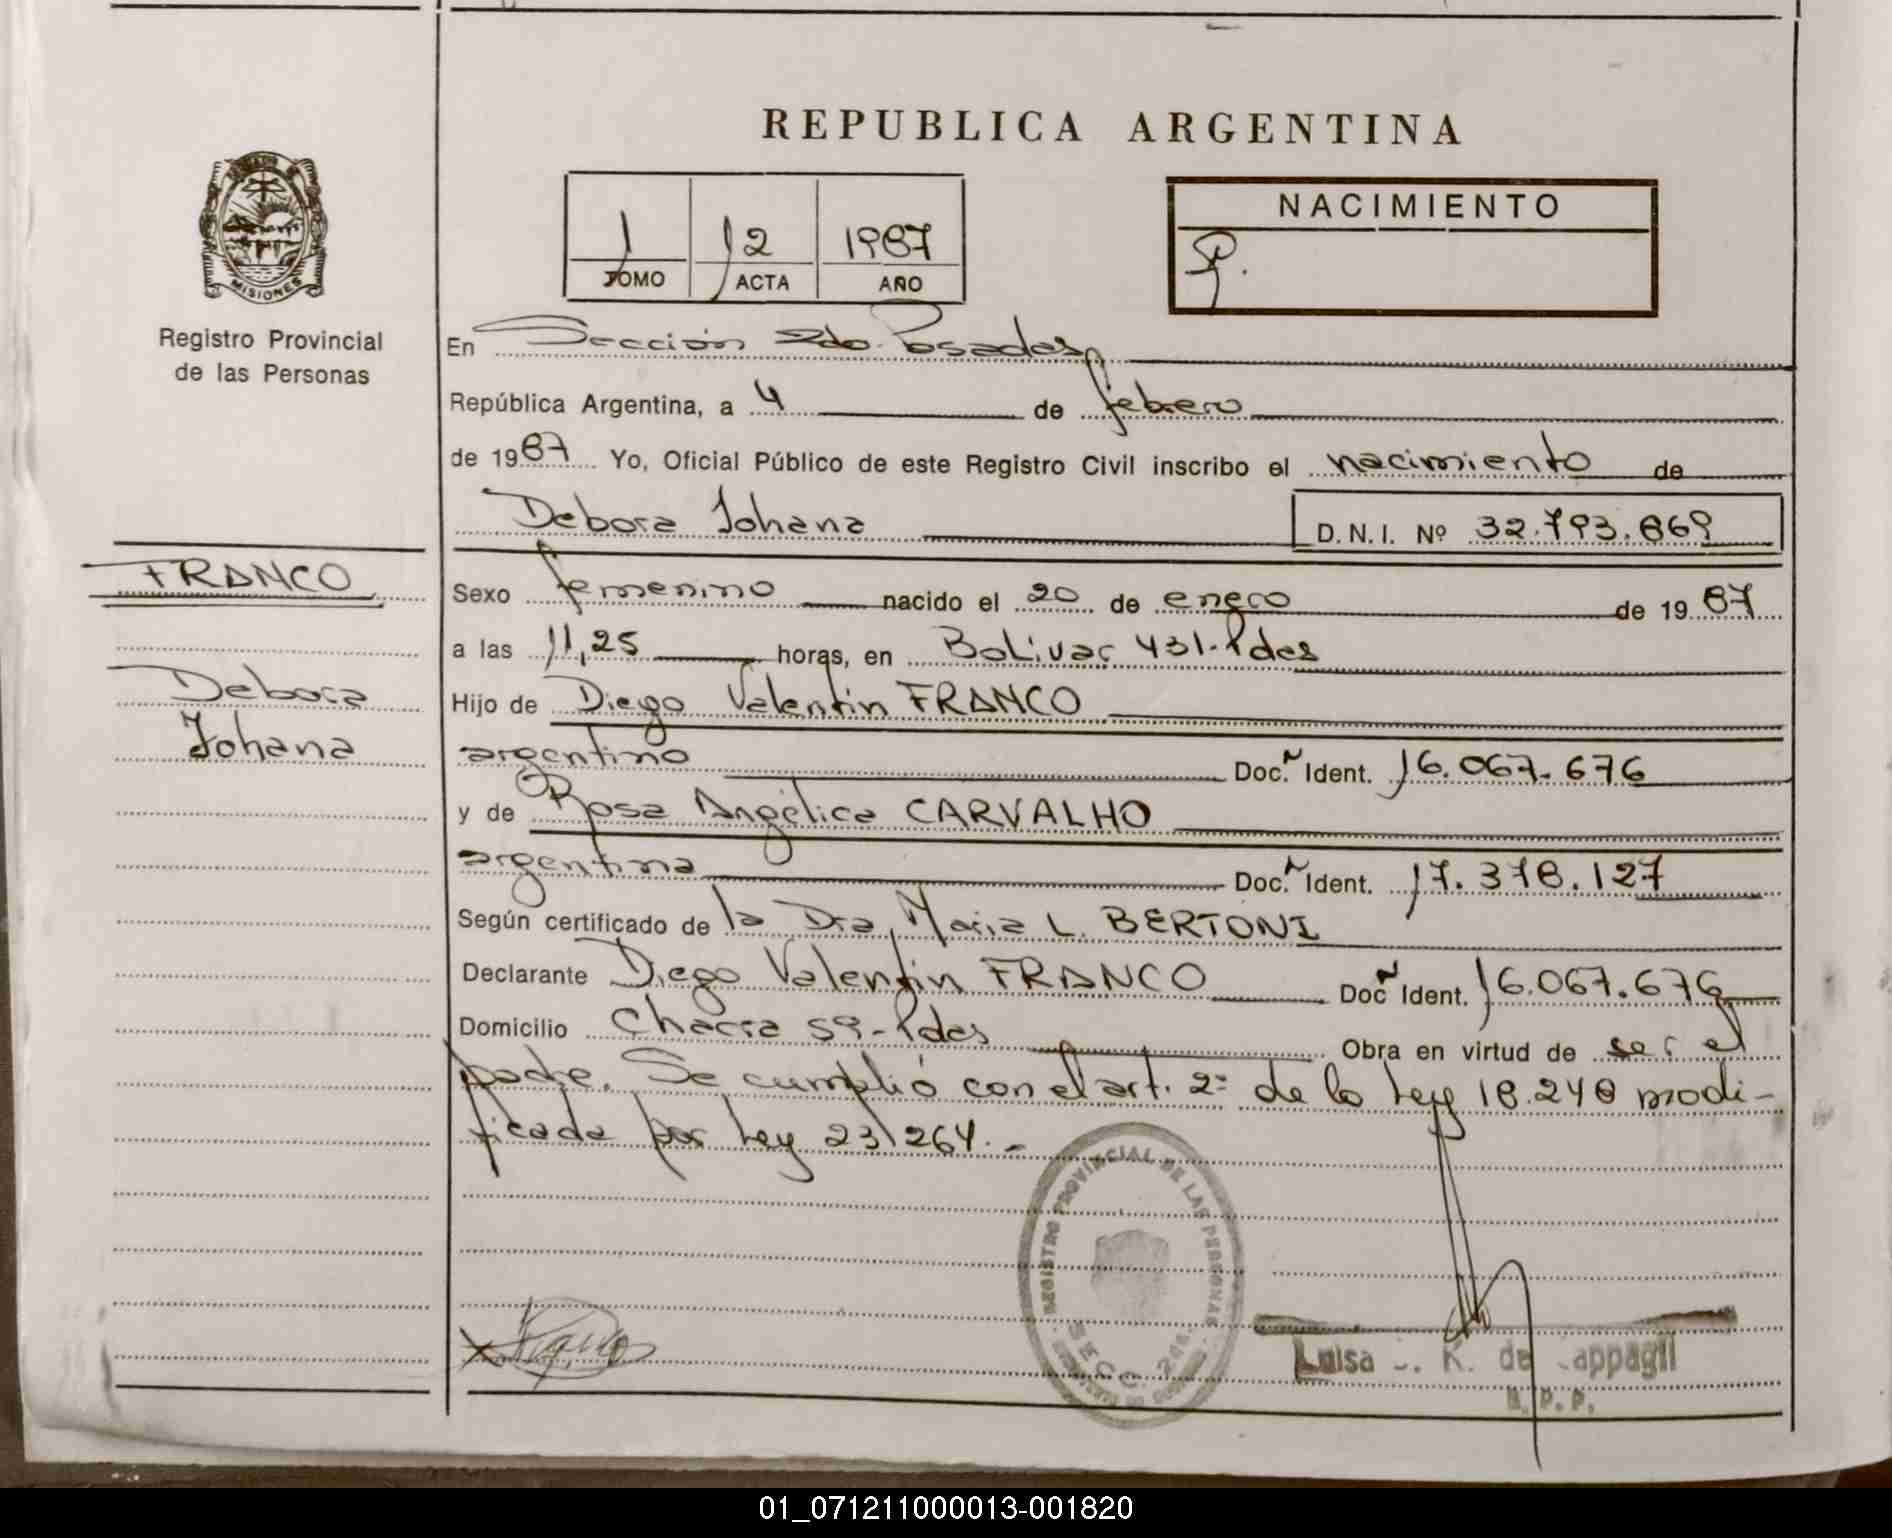 REPUBLICA ARGENTINA
MISIONES
Registro Provincial
de las Personas
1 12 1987
TOMO ACTA AÑO
NACIMIENTO
En Sección 2da. Posadas
República Argentina, a 4 de febrero
de 1987 Yo, Oficial Público de este Registro Civil inscribo el nacimiento de
Debora Johana D.N.I. Nº 32.793.869
FRANCO
Debora
Johana
Sexo femenino nacido el 20 de enero de 1987
a las 11,25 horas, en Bolivar 431-Pdas
Hijo de Diego Valentin FRANCO
argentino Doc. Ident. 16.067.676
y de Rosa Angélica CARVALHO
argentina Doc. Ident. 17.378.127
Según certificado de la Dra. Maria L. BERTONI
Declarante Diego Valentin FRANCO Doc. Ident. 16.067.676
Domicilio Chacra 59-Pdas Obra en virtud de ser el
padre. Se cumplió con el art. 2º de la Ley 18.248 modi-
ficada por Ley 23.264.-
REGISTRO PROVINCIAL DE LAS PERSONAS
SECC.
Luisa K. de
R.P.P.
01_071211000013-001820